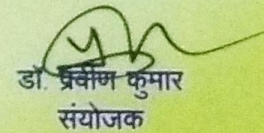 डॉ. प्रवीण कुमार
संयोजक